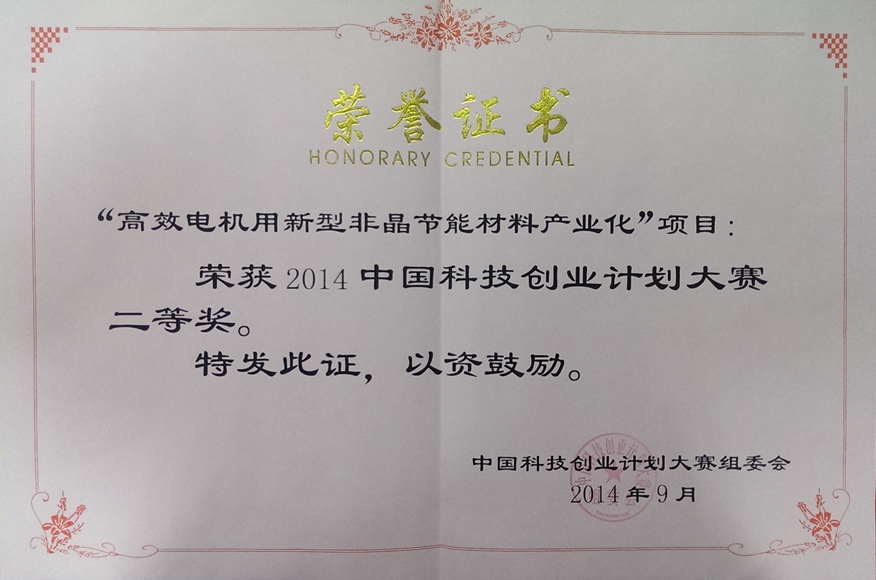 荣誉证书
HONORARY CREDENTIAL
“高效电机用新型非晶节能材料产业化”项目：
荣获2014中国科技创业计划大赛
二等奖。
特发此证，以资鼓励。
中国科技创业计划大赛组委会
2014年9月